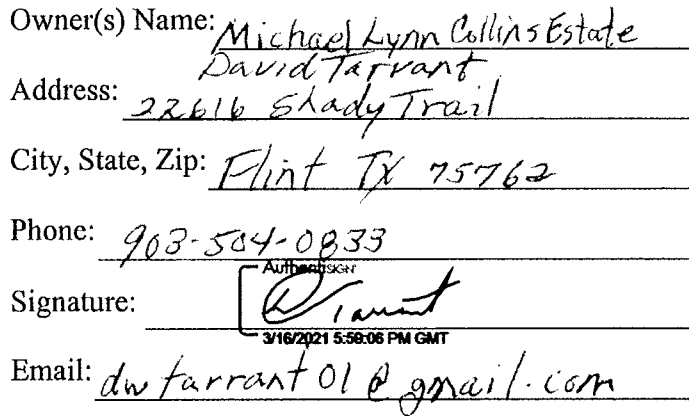 Owner(s) Name: Michael Lynn Collins Estate
David Tarrant
Address: 22616 Shady Trail
City, State, Zip: Flint TX 75762
Phone: 903-504-0833
AuthentiSIGN
Signature: D Tarrant
3/16/2021 5:59:06 PM GMT
Email: dwtarrant01@gmail.com